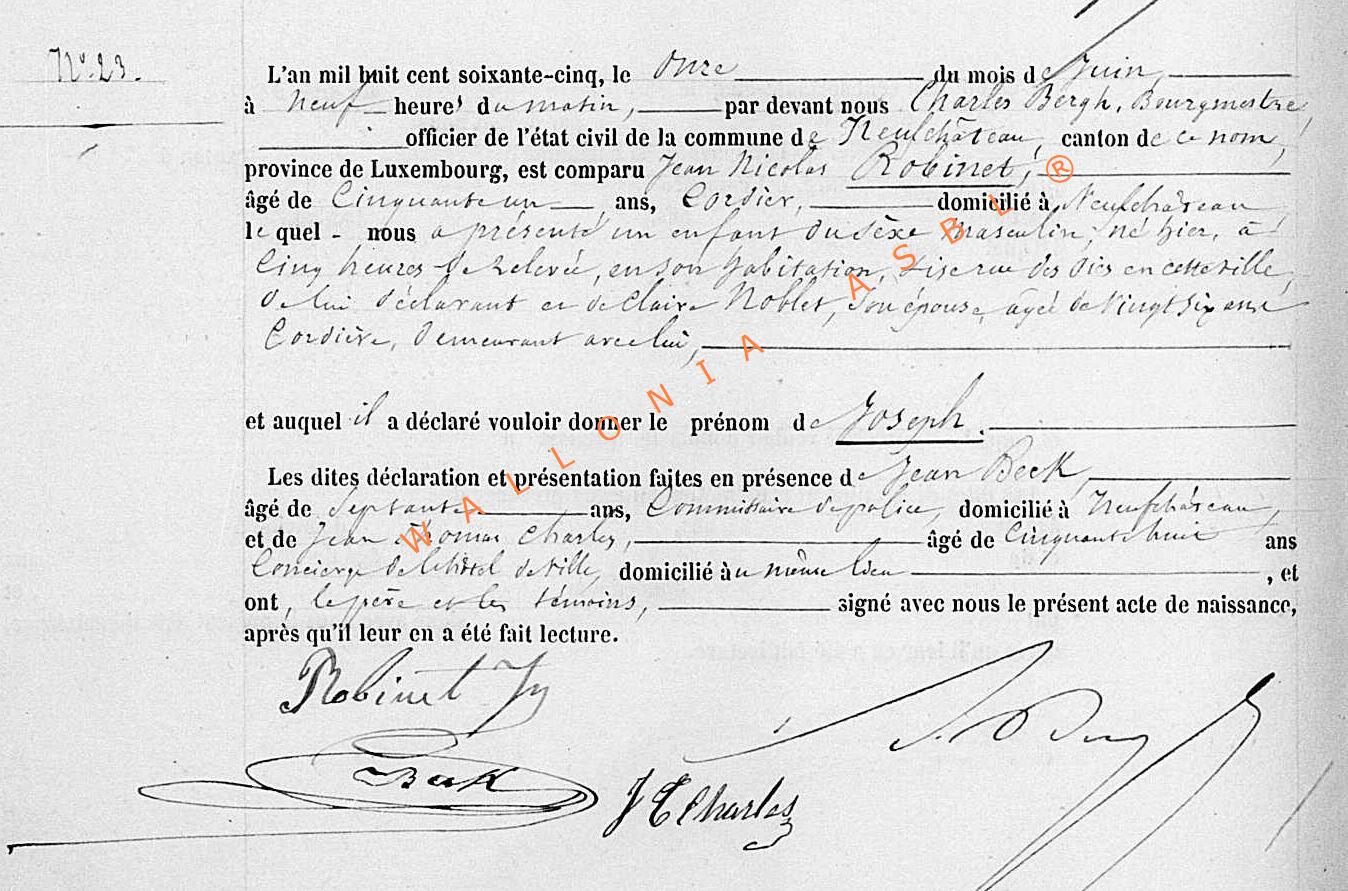 N° 23.
L'an mil huit cent soixante-cinq, le onze du mois de Juin,
à neuf heures du matin, par devant nous Charles Bergh, Bourgmestre,
officier de l'état civil de la commune de Neufchâteau, canton de ce nom,
province de Luxembourg, est comparu Jean Nicolas Robinet,
âgé de Cinquante un ans, Cordier, domicilié à Neufchâteau,
lequel nous a présenté un enfant du sèxe masculin, né hier, à
Cinq heures de relevée, en son habitation, sise rue des en cette ville,
de lui déclarant et de Claire Noblet, son épouse, agée de vingt six ans
Cordière, demeurant avec lui,
et auquel il a déclaré vouloir donner le prénom de Joseph.
Les dites déclaration et présentation faites en présence de Jean Beck,
âgé de Septante ans, Commissaire de police, domicilié à Neufchâteau,
et de Jean Thomas Charles, âgé de Cinquante huit ans
Concierge de l'hôtel de ville, domicilié au même lieu, et
ont, le père et les témoins, signé avec nous le présent acte de naissance,
après qu'il leur en a été fait lecture.
Robinet Jn
Beck
J T Charles
WALLONIA ASBL ®